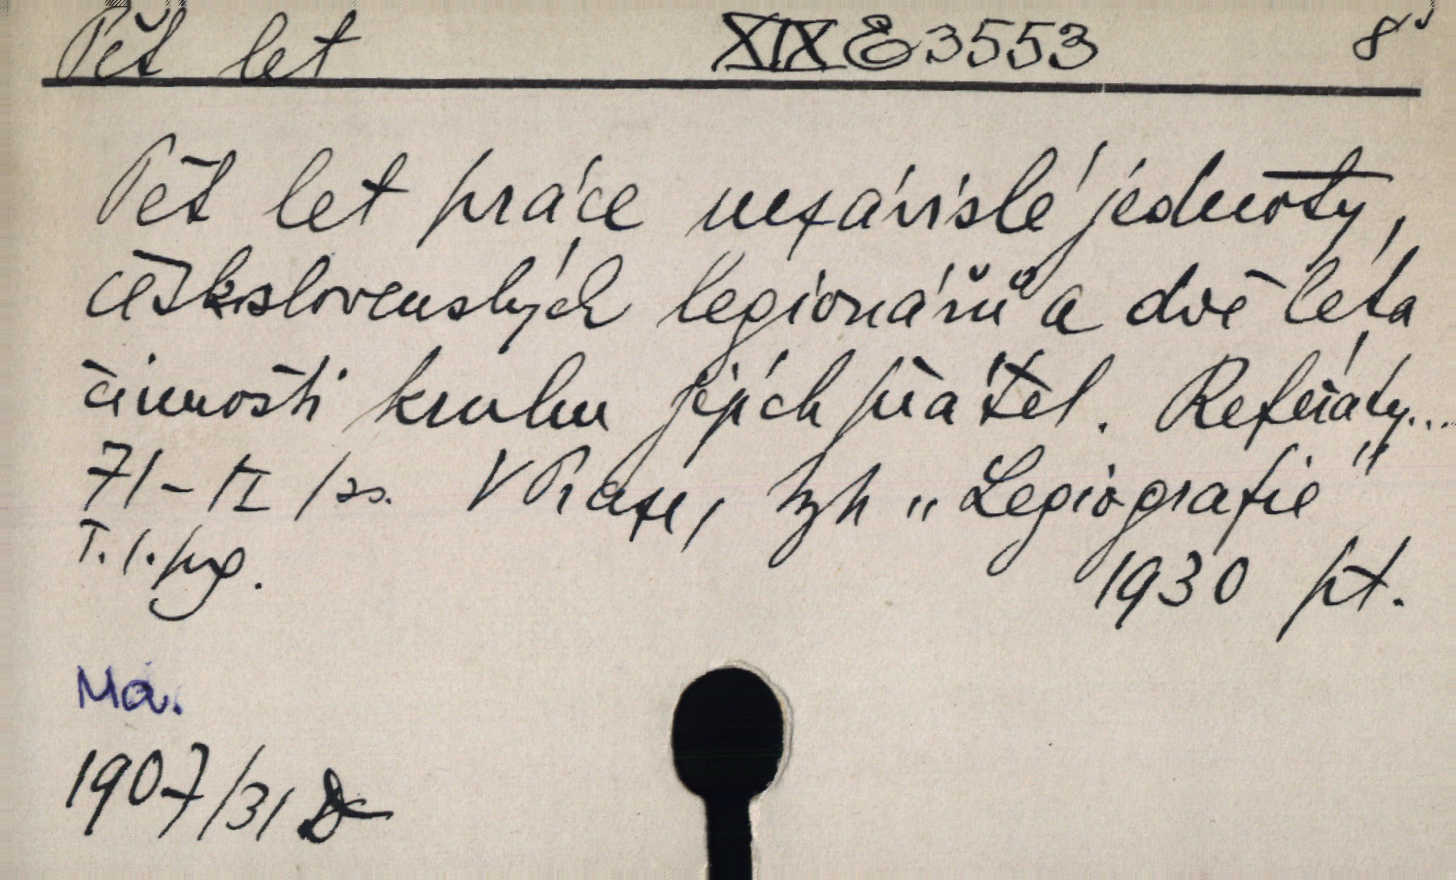 Pět let XIX E 3553 8°
Pět let práce nezávislé jednoty
československých legionářů a dvě léta
činnosti kruhu jejích přátel. Referáty...
71-II /ss. V Praze, tzh „Legiografie"
T. l. 1930 pt.
Má.
1907/31 D